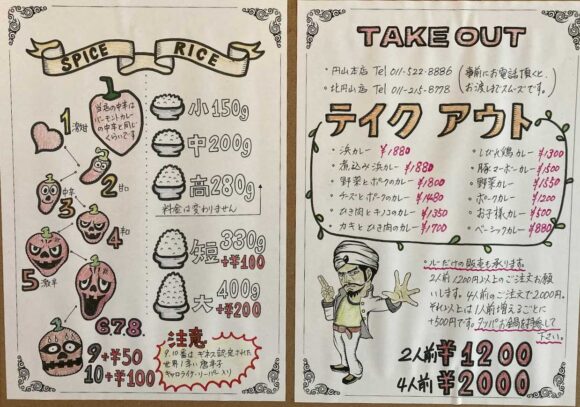 SPICE RICE
当店の中辛は
バーモントカレー
の中辛と同じ
くらいです
1 激甘
2 甘口
3 中辛
4 辛口
5 激辛
6.7.8.
9 +¥50
10 +¥100
小 150g
中 200g
高 280g
料金は変わりません
短 330g
+¥100
大 400g
+¥200
注意
9.10番はギネス認定された
世界1辛い唐辛子
キャロライナ・リーパー入り
TAKE OUT
・円山本店 Tel 011-522-8886
・北円山店 Tel 011-215-8778
(事前にお電話頂くと、
お渡しがスムーズです。)
テイク アウト
・浜カレー ¥1880
・煮込み浜カレー ¥1880
・野菜とポークのカレー ¥1800
・チーズとポークのカレー ¥1480
・ひき肉とキノコのカレー ¥1350
・カキとひき肉のカレー ¥1700
・しびれ鶏カレー ¥1300
・豚マーボーカレー ¥1500
・野菜カレー ¥1550
・ポークカレー ¥1200
・お子様カレー ¥500
・ベーシックカレー ¥880
・ルーだけの販売も承ります。
2人前1200円以上のご注文お願
いします。4人前のご注文で2000円。
それ以上は1人前増えるごとに
+500円です。タッパかお鍋を持参して
下さい。
2人前 ¥1200
4人前 ¥2000